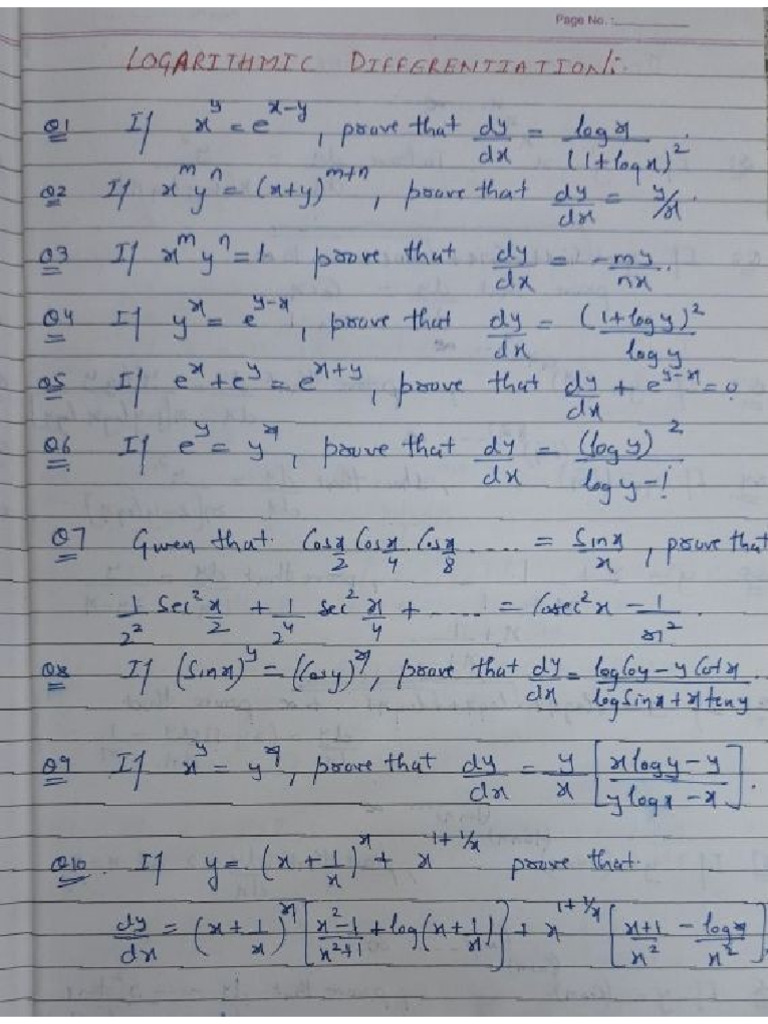 Page No.:
LOGARITHMIC DIFFERENTIATION:
Q1 If x^y = e^(x-y), prove that dy/dx = log x/(1+log x)^2.
Q2 If x^m y^n = (x+y)^(m+n), prove that dy/dx = y/x.
Q3 If x^m y^n = 1 prove that dy/dx = -my/nx.
Q4 If y^x = e^(y-x), prove that dy/dx = (1+log y)^2/log y
Q5 If e^x + e^y = e^(x+y), prove that dy/dx + e^(y-x) = 0
Q6 If e^y = y^x, prove that dy/dx = (log y)^2/(log y - 1)
Q7 Given that Cos x/2 Cos x/4 . Cos x/8 ..... = Sin x/x, prove that
1/2^2 Sec^2 x/2 + 1/2^4 Sec^2 x/4 + ..... = Cosec^2 x - 1/x^2.
Q8 If (Sin x)^y = (Cos y)^x, prove that dy/dx = (log Coy - y Cot x)/(log Sin x + x tan y).
Q9 If x^y = y^x, prove that dy/dx = y/x [(x log y - y)/(y log x - x)].
Q10 If y = (x + 1/x)^x + x^(1+1/x) prove that
dy/dx = (x + 1/x)^x [(x^2-1)/(x^2+1) + log(x + 1/x)] + x^(1+1/x) [(x+1)/x^2 - log x/x^2]